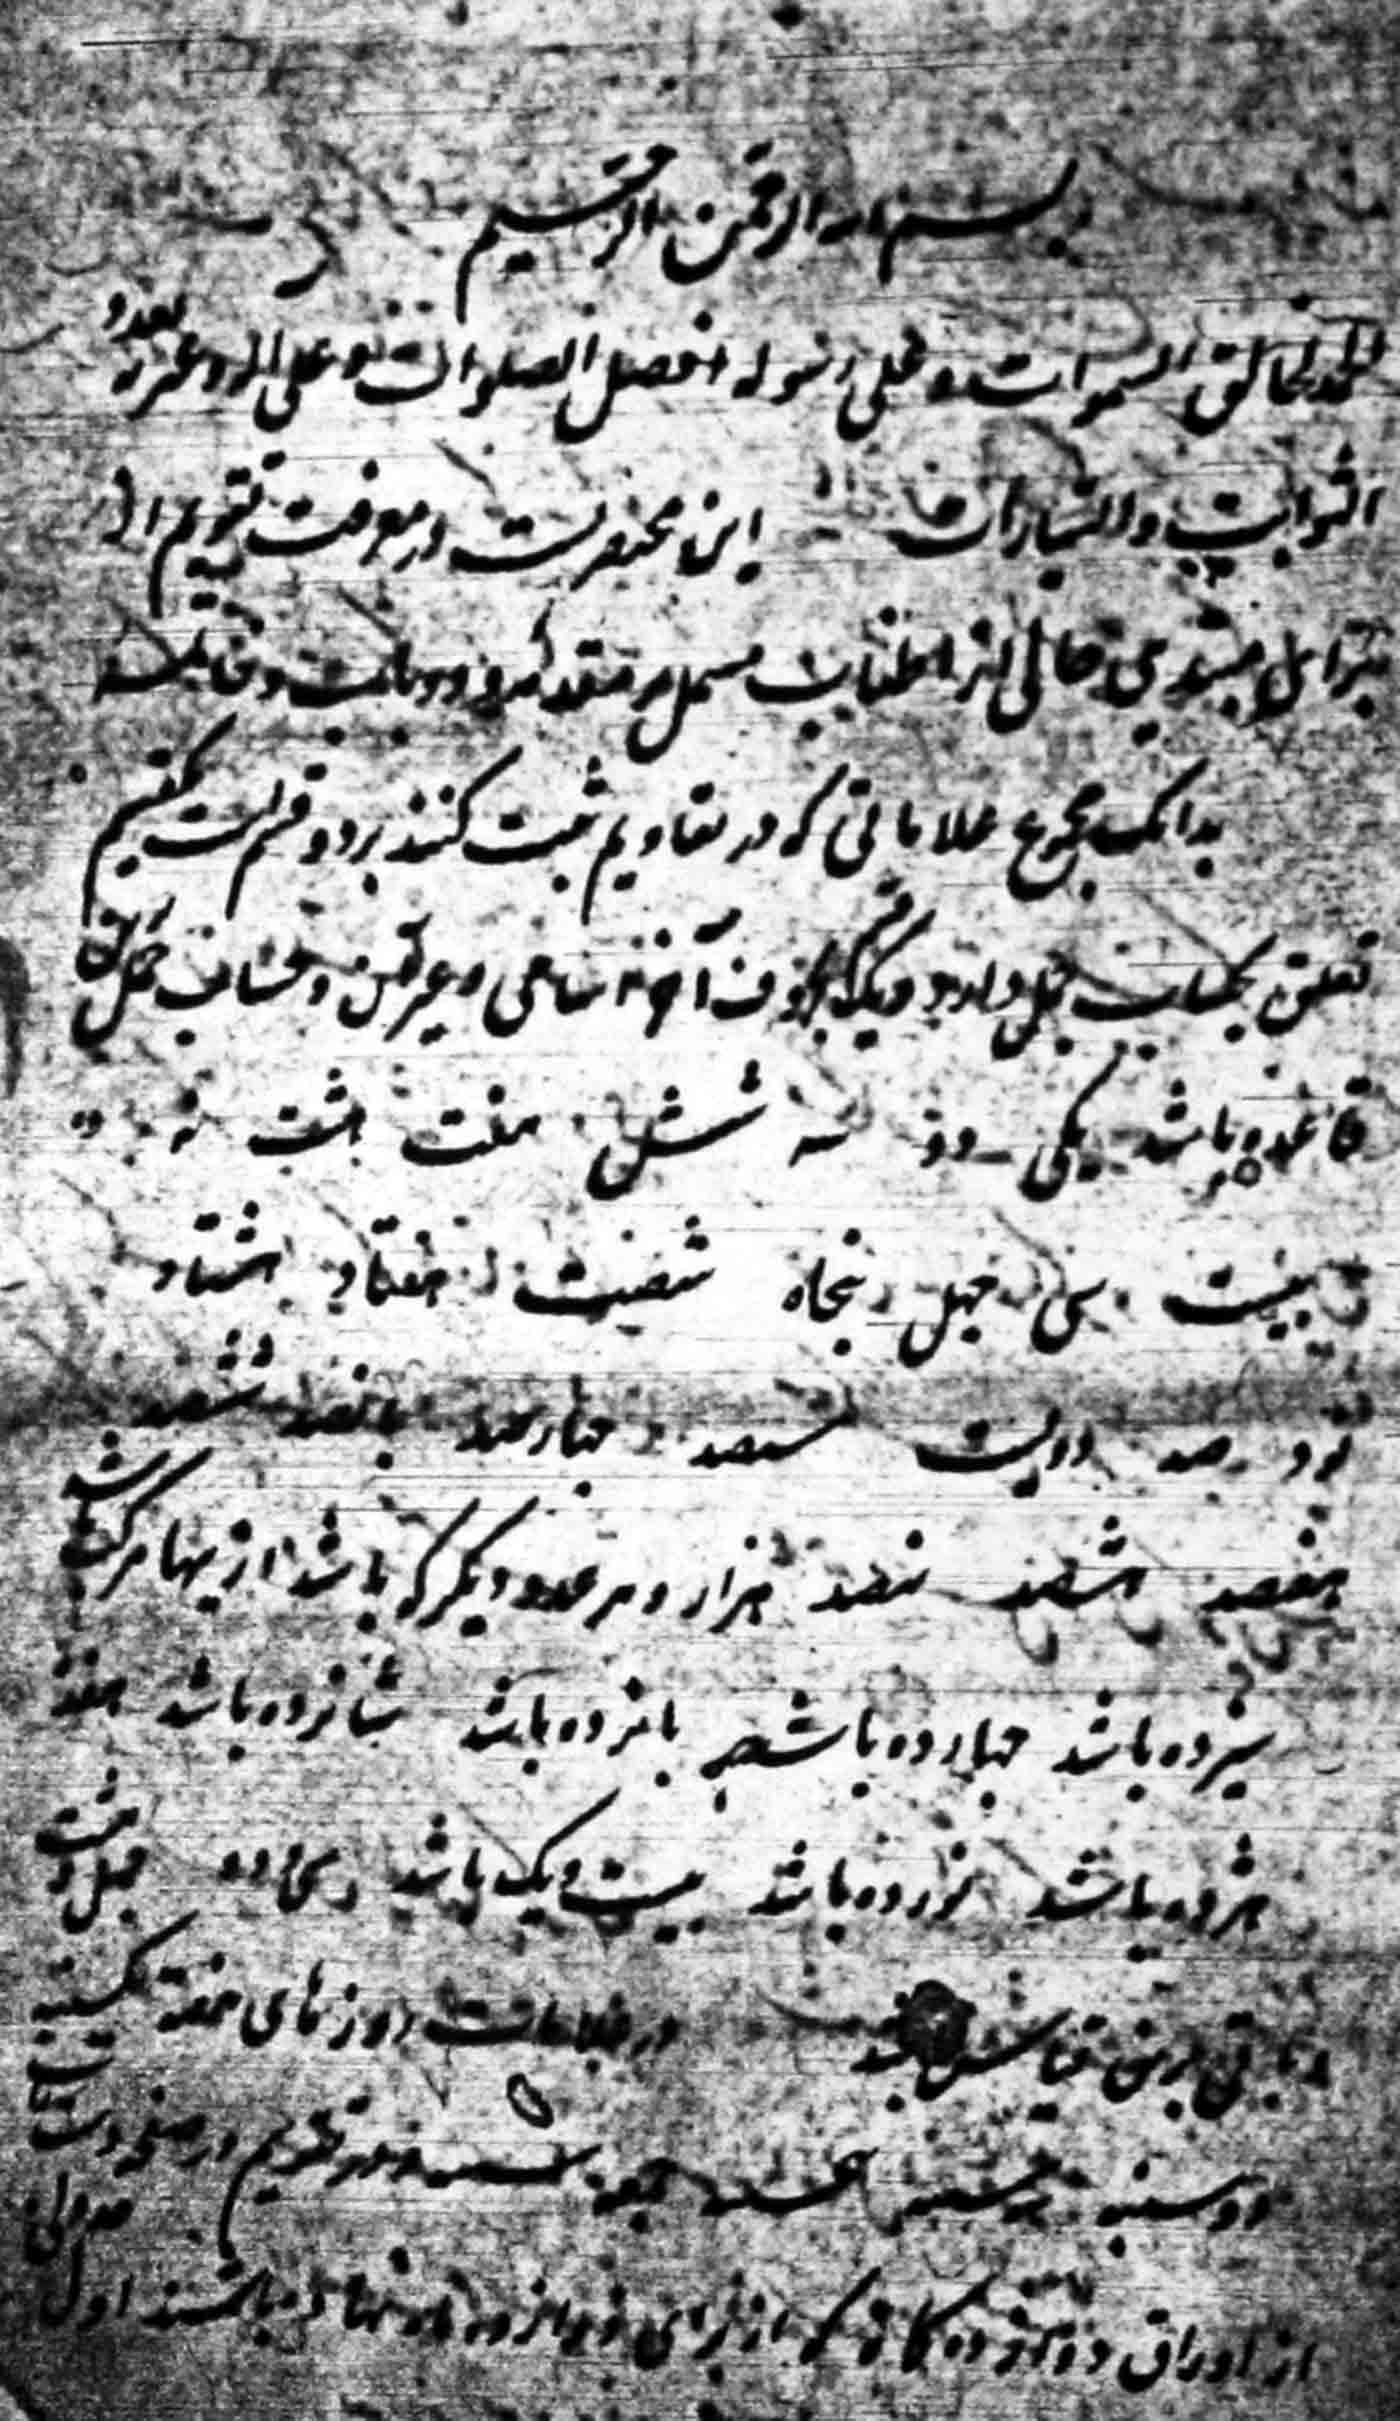 بسم الله الرحمن الرحیم
الحمد لخالق السموات و علی رسوله افضل الصلوات و علی اله و عترته بعدد
الثوابت و السیارات این مختصریست در معرفت تقویم از
برای مبتدی خالی از اطناب مشتمل بر مقدمه و دو باب و خاتمه
بدانکه مجموع علاماتی که در تقاویم ثبت کنند بر دو قسم است یکقسم
تعلق بحساب جمل دارد و دیگر بحروف آخر اسامی و غیر آن و حساب جمل
قاعده باشد یکی دو سه شش هفت هشت نه ده
بیست سی چهل پنجاه شصت هفتاد هشتاد
نود صد دویست سیصد چهارصد پانصد ششصد
هفصد هشصد نهصد هزار و هر عدد دیگر که باشد ازینها مرکب باشد
سیزده باشد چهارده باشد پانزده باشد شانزده باشد هفده
هژده باشد نوزده باشد بیست و یک باشد سی و دو چهل و هشت
و باقی برین قیاس در علامات روزهای هفته یکشنبه
دوشنبه جمعه شنبه و در تقویم در صفحه دست
از اوراق دوازده گانه که از برای دوازده ماه نهاده باشند اول جدولی